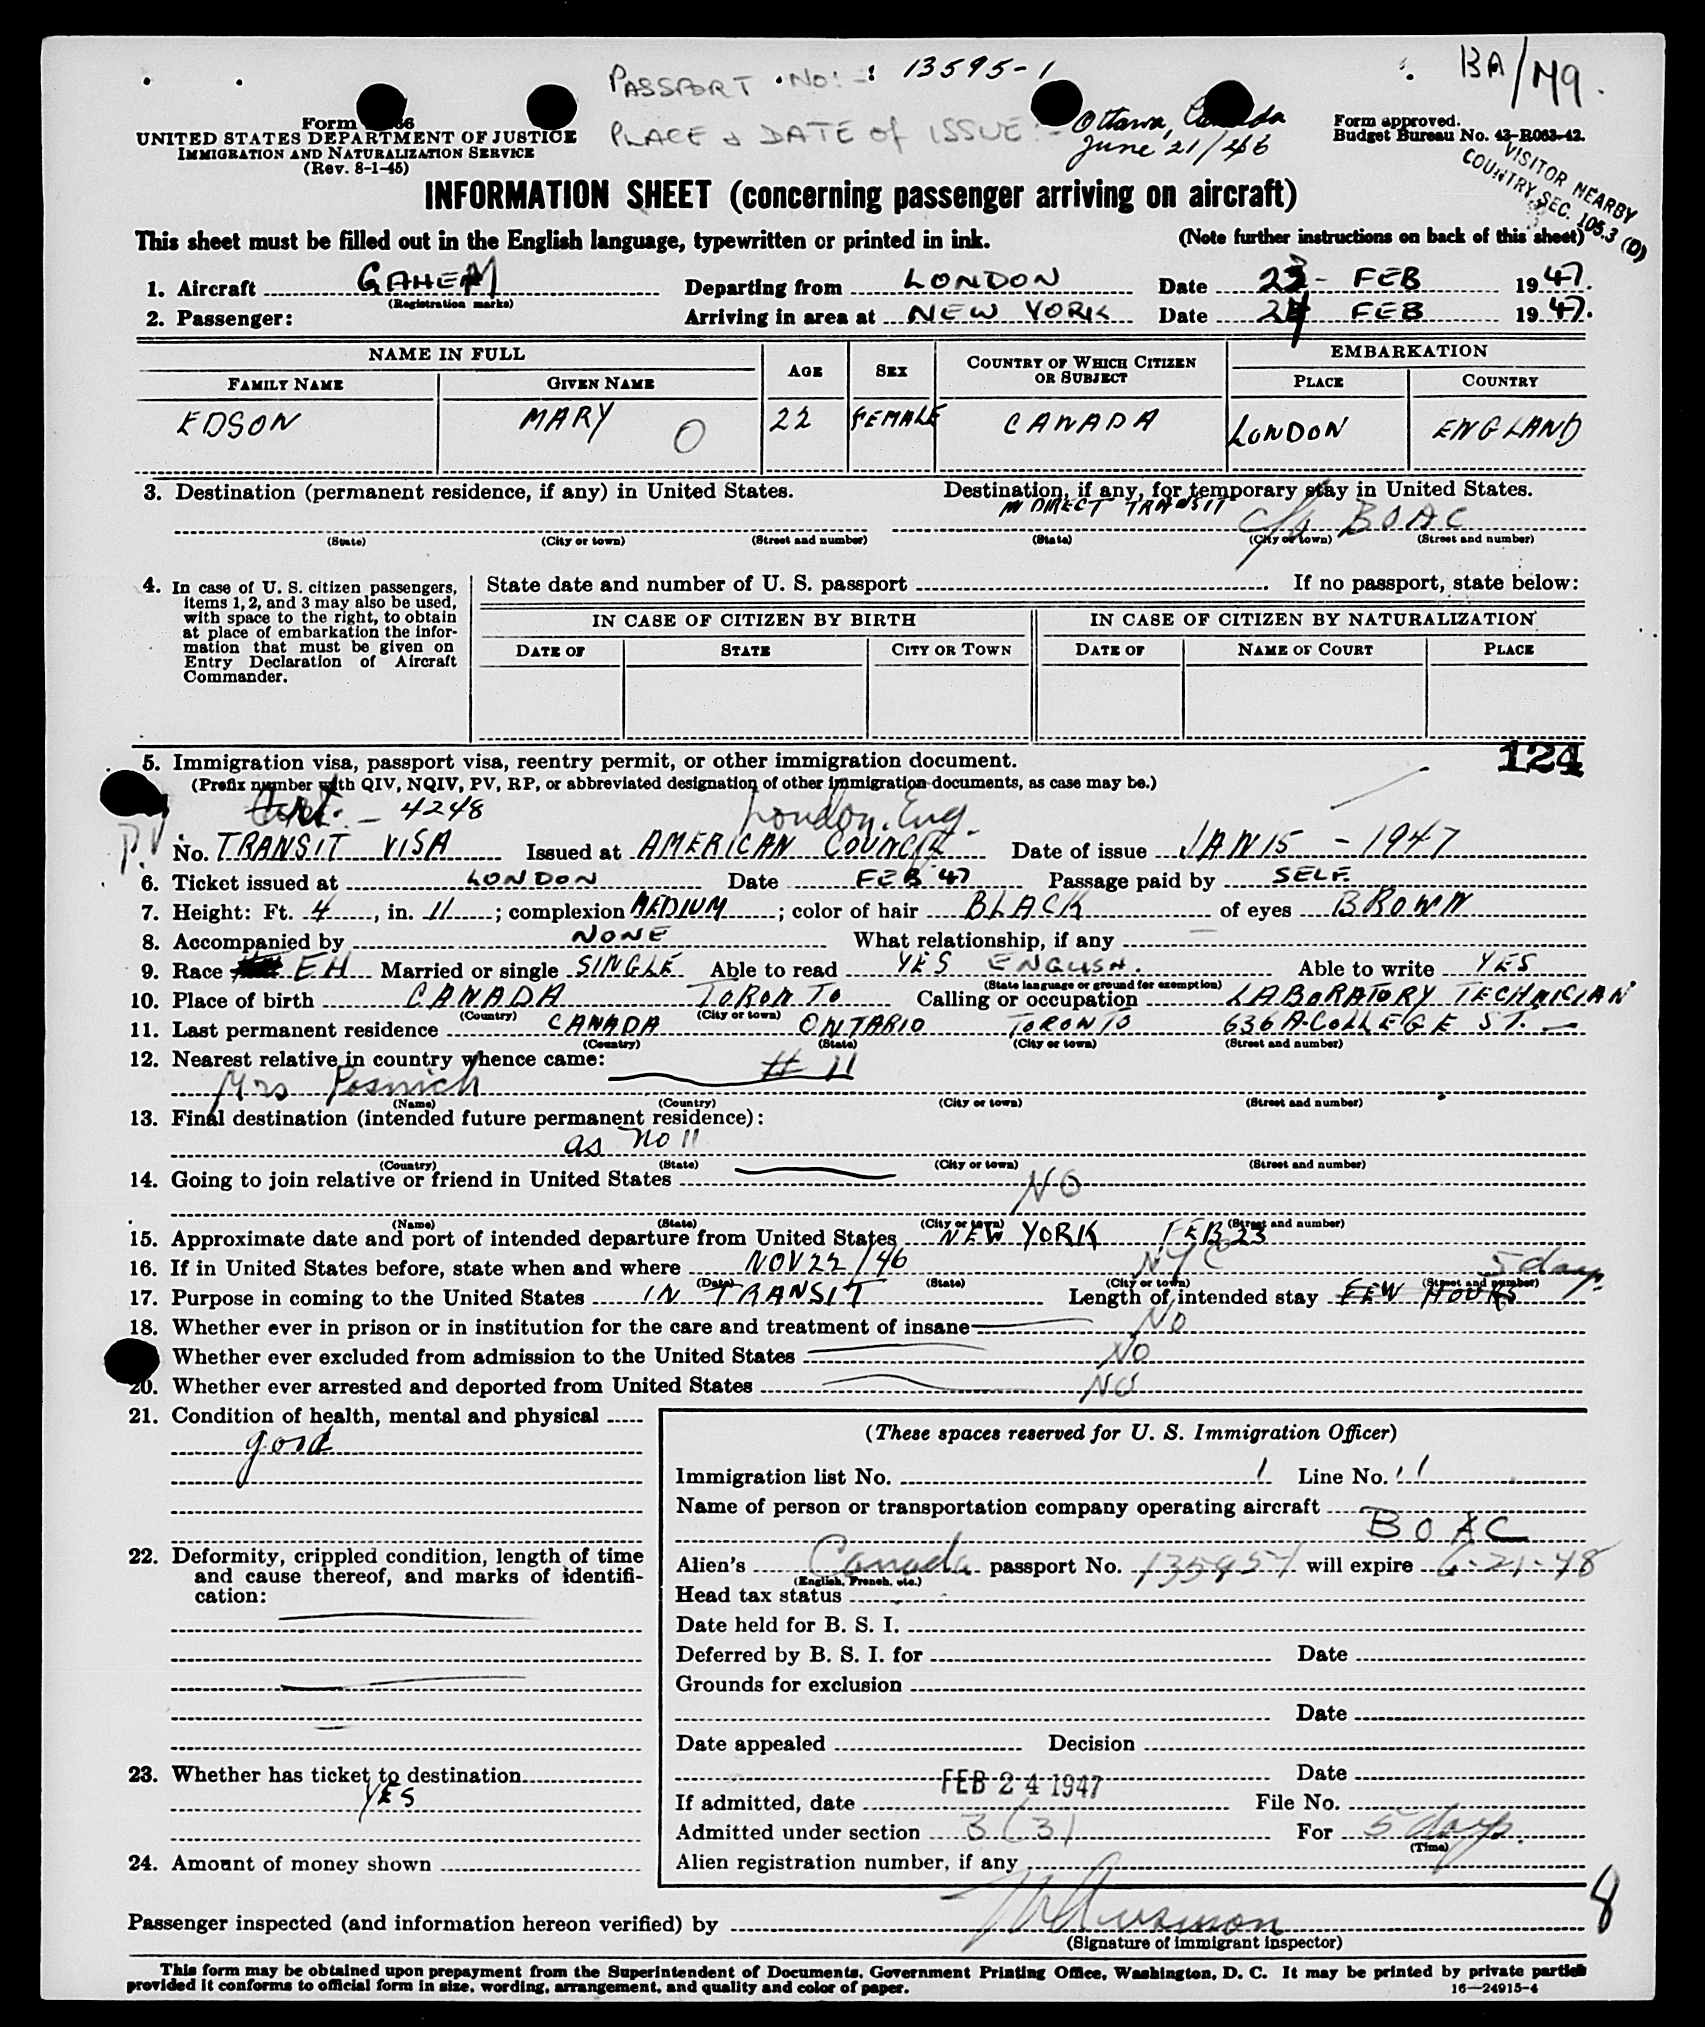 PASSPORT No: -: 13595-1
BA/M9.
Form
UNITED STATES DEPARTMENT OF JUSTICE
IMMIGRATION AND NATURALIZATION SERVICE
(Rev. 8-1-45)
PLACE & DATE of ISSUE:- Ottawa, Canada
June 21/46
Form approved.
Budget Bureau No. 43-R063-42.
VISITOR NEARBY
COUNTRY, SEC. 105.3 (D)
INFORMATION SHEET (concerning passenger arriving on aircraft)
This sheet must be filled out in the English language, typewritten or printed in ink. (Note further instructions on back of this sheet)
1. Aircraft GAHEM Departing from LONDON Date 23 - FEB 1947.
(Registration marks)
2. Passenger: Arriving in area at NEW YORK Date 24 FEB 1947.
NAME IN FULL AGE SEX COUNTRY OF WHICH CITIZEN OR SUBJECT EMBARKATION
FAMILY NAME GIVEN NAME PLACE COUNTRY
EDSON MARY O 22 FEMALE CANADA LONDON ENGLAND
3. Destination (permanent residence, if any) in United States. Destination, if any, for temporary stay in United States.
IN DIRECT TRANSIT c/o BOAC
(State) (City or town) (Street and number) (State) (City or town) (Street and number)
4. In case of U. S. citizen passengers, items 1, 2, and 3 may also be used, with space to the right, to obtain at place of embarkation the information that must be given on Entry Declaration of Aircraft Commander.
State date and number of U. S. passport . If no passport, state below:
IN CASE OF CITIZEN BY BIRTH IN CASE OF CITIZEN BY NATURALIZATION
DATE OF STATE CITY OR TOWN DATE OF NAME OF COURT PLACE
124
5. Immigration visa, passport visa, reentry permit, or other immigration document.
(Prefix number with QIV, NQIV, PV, RP, or abbreviated designation of other immigration documents, as case may be.)
4248 London. Eng.
PV
No. TRANSIT VISA Issued at AMERICAN Date of issue JAN 15 - 1947
6. Ticket issued at LONDON Date FEB 47 Passage paid by SELF.
7. Height: Ft. 4, in. 11; complexion MEDIUM; color of hair BLACK of eyes BROWN
8. Accompanied by NONE What relationship, if any
9. Race EH Married or single SINGLE Able to read YES ENGLISH. Able to write YES
(State language or ground for exemption)
10. Place of birth CANADA TORONTO Calling or occupation LABORATORY TECHNICIAN
(Country) (City or town)
11. Last permanent residence CANADA ONTARIO TORONTO 636A COLLEGE ST.
(Country) (State) (City or town) (Street and number)
12. Nearest relative in country whence came: # 11
Mrs Posnick
(Name) (Country) (City or town) (Street and number)
13. Final destination (intended future permanent residence):
as No 11
(Country) (State) (City or town) (Street and number)
14. Going to join relative or friend in United States NO
(Name) (State) (City or town) (Street and number)
15. Approximate date and port of intended departure from United States NEW YORK FEB 23
16. If in United States before, state when and where NOV 22/46 NYC 5 days
(Date) (State) (City or town) (Street and number)
17. Purpose in coming to the United States IN TRANSIT Length of intended stay FEW HOURS
18. Whether ever in prison or in institution for the care and treatment of insane No
Whether ever excluded from admission to the United States NO
20. Whether ever arrested and deported from United States NO
21. Condition of health, mental and physical
good
22. Deformity, crippled condition, length of time and cause thereof, and marks of identification:
23. Whether has ticket to destination
YES
24. Amount of money shown
(These spaces reserved for U. S. Immigration Officer)
Immigration list No. 1 Line No. 11
Name of person or transportation company operating aircraft
BOAC
Alien's Canada passport No. 13595-1 will expire 6-21-48
(English, French, etc.)
Head tax status
Date held for B. S. I.
Deferred by B. S. I. for Date
Grounds for exclusion
Date
Date appealed Decision
Date
If admitted, date FEB 24 1947 File No.
Admitted under section 3(3) For 5 days.
(Time)
Alien registration number, if any
8
Passenger inspected (and information hereon verified) by
(Signature of immigrant inspector)
This form may be obtained upon prepayment from the Superintendent of Documents, Government Printing Office, Washington, D. C. It may be printed by private parties
provided it conforms to official form in size, wording, arrangement, and quality and color of paper. 16—24915-4